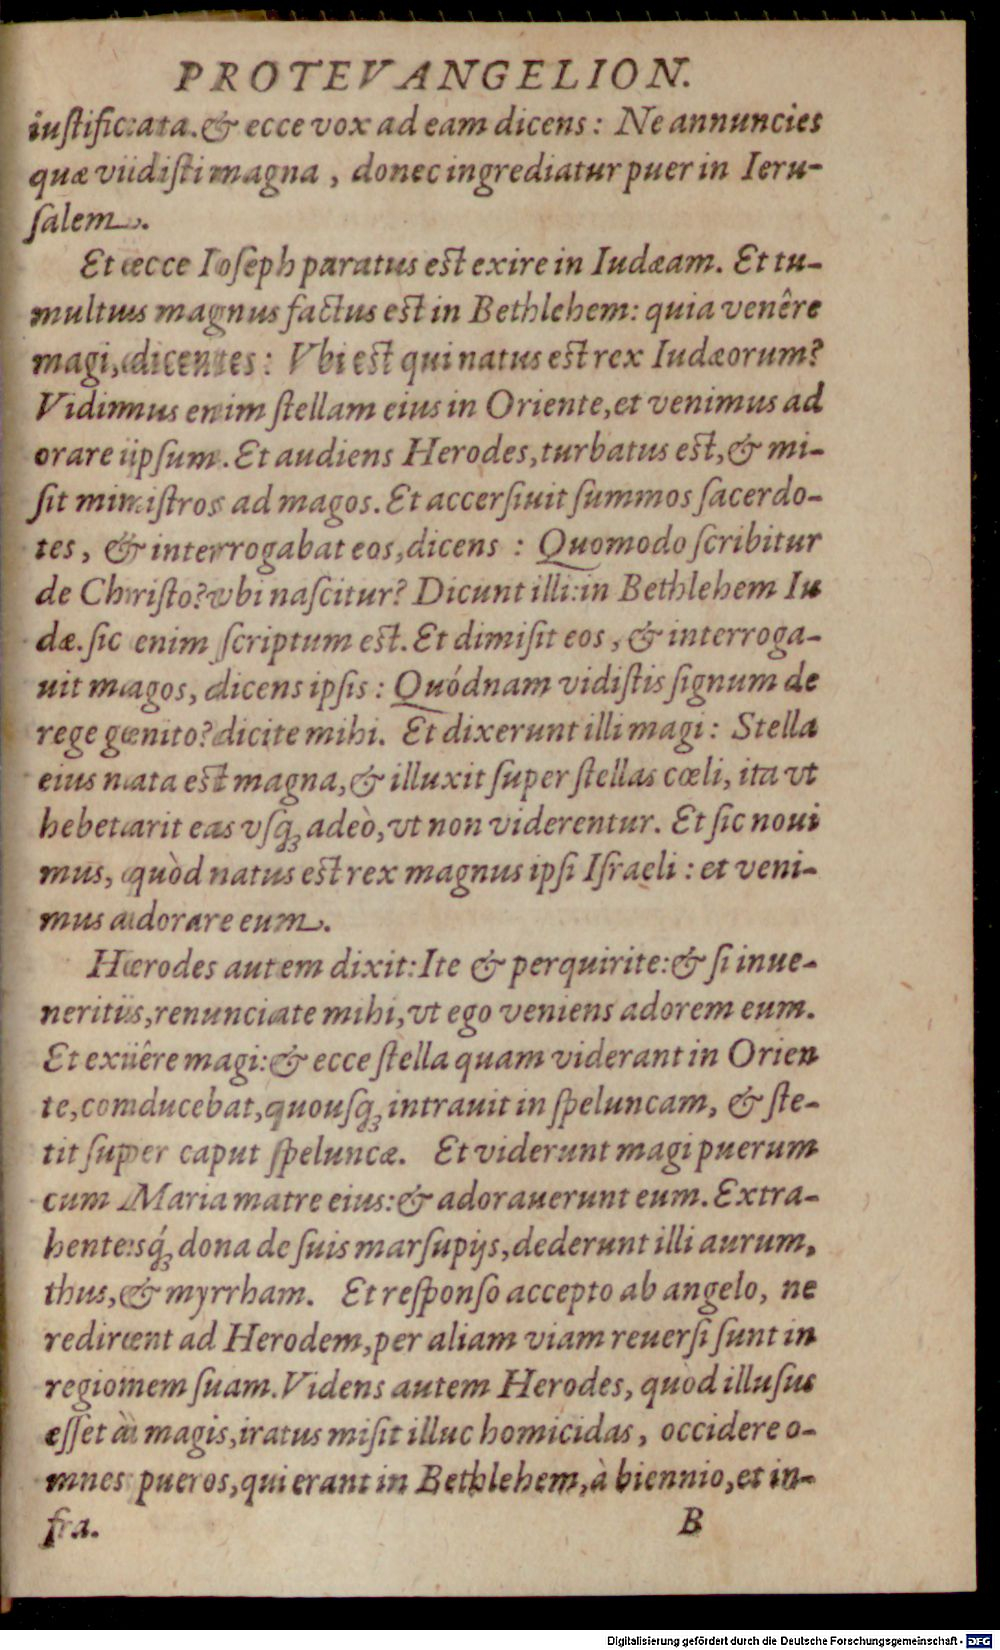 PROTEVANGELION.
iuſtificata. & ecce vox ad eam dicens: Ne annuncies
quæ vidiſti magna, donec ingrediatur puer in Ieru-
ſalem.
Et ecce Ioſeph paratus eſt exire in Iudæam. Et tu-
multus magnus factus eſt in Bethlehem: quia venêre
magi, dicentes: Vbi eſt qui natus eſt rex Iudæorum?
Vidimus enim ſtellam eius in Oriente, et venimus ad
orare ipſum. Et audiens Herodes, turbatus eſt, & mi-
ſit miniſtros ad magos. Et accerſiuit ſummos ſacerdo-
tes, & interrogabat eos, dicens: Quomodo ſcribitur
de Chriſto? vbi naſcitur? Dicunt illi: in Bethlehem Iu
dæ. ſic enim ſcriptum eſt. Et dimiſit eos, & interroga-
uit magos, dicens ipſis: Quódnam vidiſtis ſignum de
rege genito? dicite mihi. Et dixerunt illi magi: Stella
eius nata eſt magna, & illuxit ſuper ſtellas cœli, ita vt
hebetarit eas vſq; adeò, vt non viderentur. Et ſic noui
mus, quòd natus eſt rex magnus ipſi Iſraeli: et veni-
mus adorare eum.
Herodes autem dixit: Ite & perquirite: & ſi inue-
neritis, renunciate mihi, vt ego veniens adorem eum.
Et exiêre magi: & ecce ſtella quam viderant in Orien
te, conducebat, quouſq; intrauit in ſpeluncam, & ſte-
tit ſuper caput ſpeluncæ. Et viderunt magi puerum
cum Maria matre eius: & adorauerunt eum. Extra-
hentesq́; dona de ſuis marſupijs, dederunt illi aurum,
thus, & myrrham. Et reſponſo accepto ab angelo, ne
redirent ad Herodem, per aliam viam reuerſi ſunt in
regionem ſuam. Videns autem Herodes, quòd illuſus
eſſet à magis, iratus miſit illuc homicidas, occidere o-
mnes pueros, qui erant in Bethlehem, à biennio, et in-
fra. B
Digitalisierung gefördert durch die Deutsche Forschungsgemeinschaft - DFG